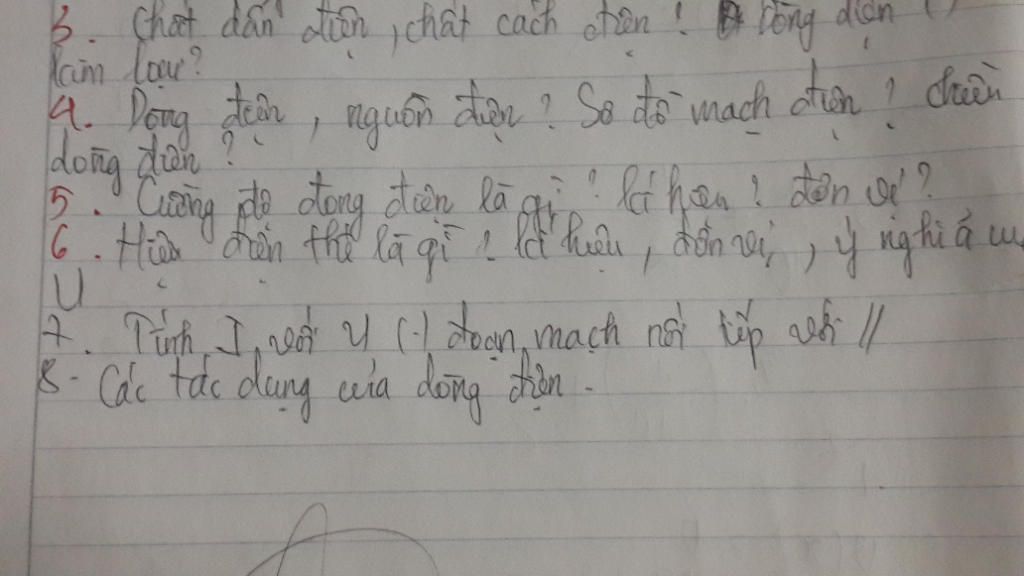 3. Chất dẫn điện, chất cách điện? Dòng điện (·)
kim loại?
4. Dòng điện, nguồn điện? Sơ đồ mạch điện? chiều
dòng điện?
5. Cường độ dòng điện là gì? kí hiệu? đơn vị?
6. Hiệu điện thế là gì? kí hiệu, đơn vị, ý nghĩa của
U
7. Tính I với U (·) đoạn mạch nối tiếp với //
8 - Các tác dụng của dòng điện.